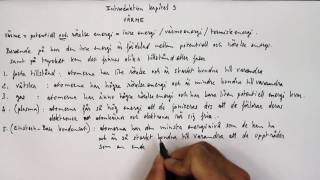 Introduktion kapitel 3
VÄRME
värme = potentiell och rörelse energi = inre energi / värmeenergi / termisk energi.
Beroende på hur den inre energin är fördelad mellan potentiell och rörelse energi.
samt på trycket kan det finnas olika tillstånd eller faser.
1. fasta tillstånd : atomerna har lite rörelse energi och är starkt bundna till varandra
2. vätska : atomerna har mer rörelse energi och är mindre bundna till varandra
3. gas : atomerna har ännu högre rörelse energi och har bara liten potentiell energi kvar.
4. (plasma) : atomerna får så hög energi att de joniseras dvs att de förlorar deras
elektroner och atomkärnorna och elektronerna rör sig fria.
5. (Einstein-Bose kondensat) : atomerna har den minsta energinivå som de kan ha
och är så starkt bundna till varandra att de uppträder
som en enda